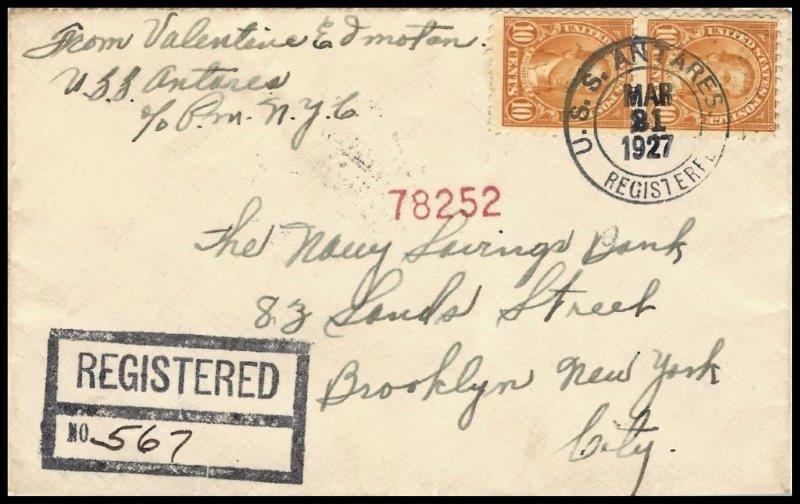 From Valentine Edmoton.
U.S.S. Antares
c/o P.m. N.Y.C
10 CENTS 10
UNITED
10 UNITED STATES POSTAGE 10
U.S.S. ANTARES
MAR
21
1927
REGISTERED
78252
The Navy Savings Bank
83 Sands Street
Brooklyn New York
City.
REGISTERED
NO 567